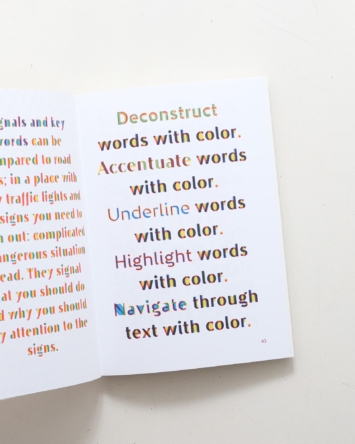 words can be
to road
in a place with
traffic lights and
signs you need to
out: complicated
situation
They signal
you should do
why you should
attention to the
signs.
Deconstruct
words with color.
Accentuate words
with color.
Underline words
with color.
Highlight words
with color.
Navigate through
text with color.